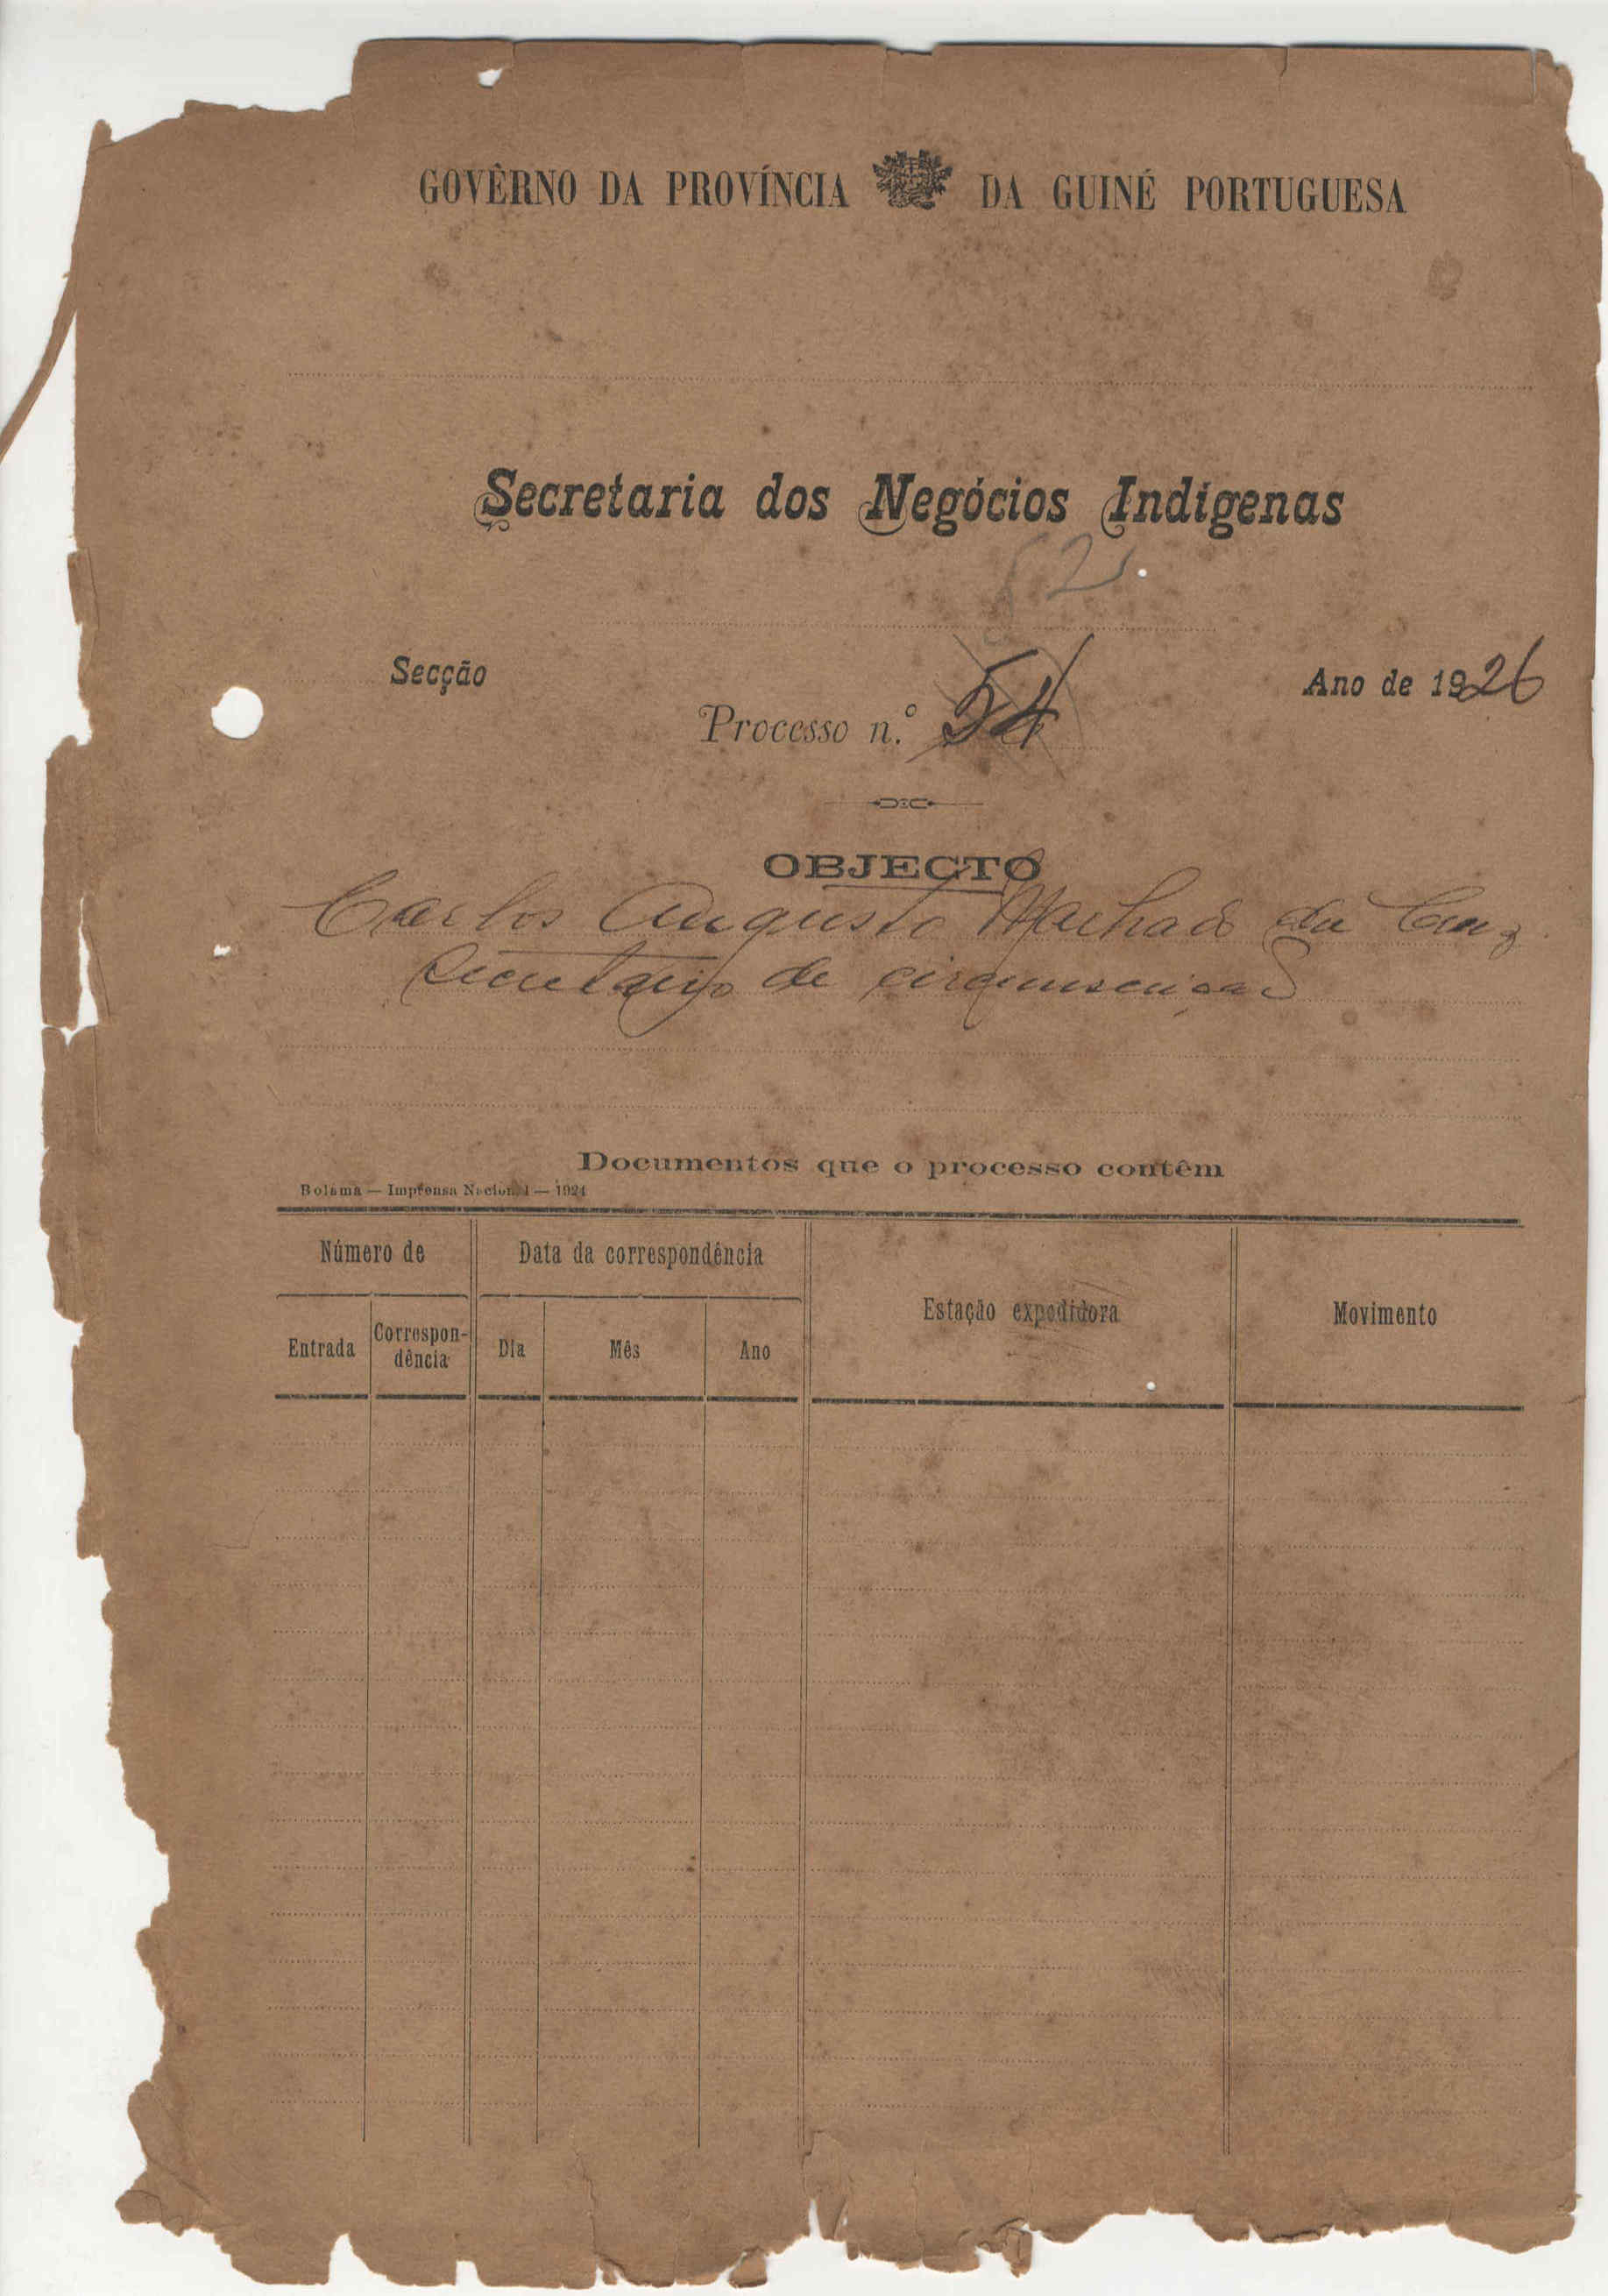 GOVÊRNO DA PROVÍNCIA DA GUINÉ PORTUGUESA
Secretaria dos Negócios Indígenas
52
Secção
Ano de 1926
Processo n.º 54
OBJECTO
Carlos Augusto Machado da Cruz
Secretario de circunscrição
Documentos que o processo contêm
Bolama — Imprensa Nacional — 1924
Número de
Data da correspondência
Estação expedidora
Movimento
Entrada
Correspon-
dência
Dia
Mês
Ano